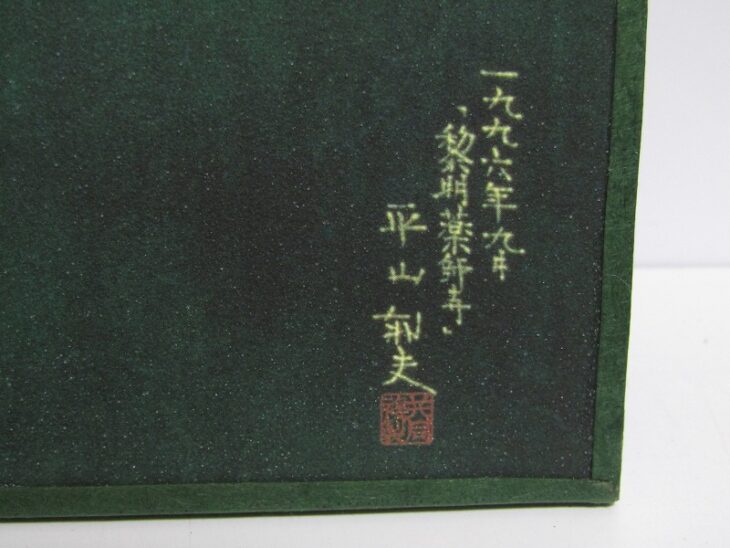 一九九六年九月
「黎明薬師寺」
平山郁夫